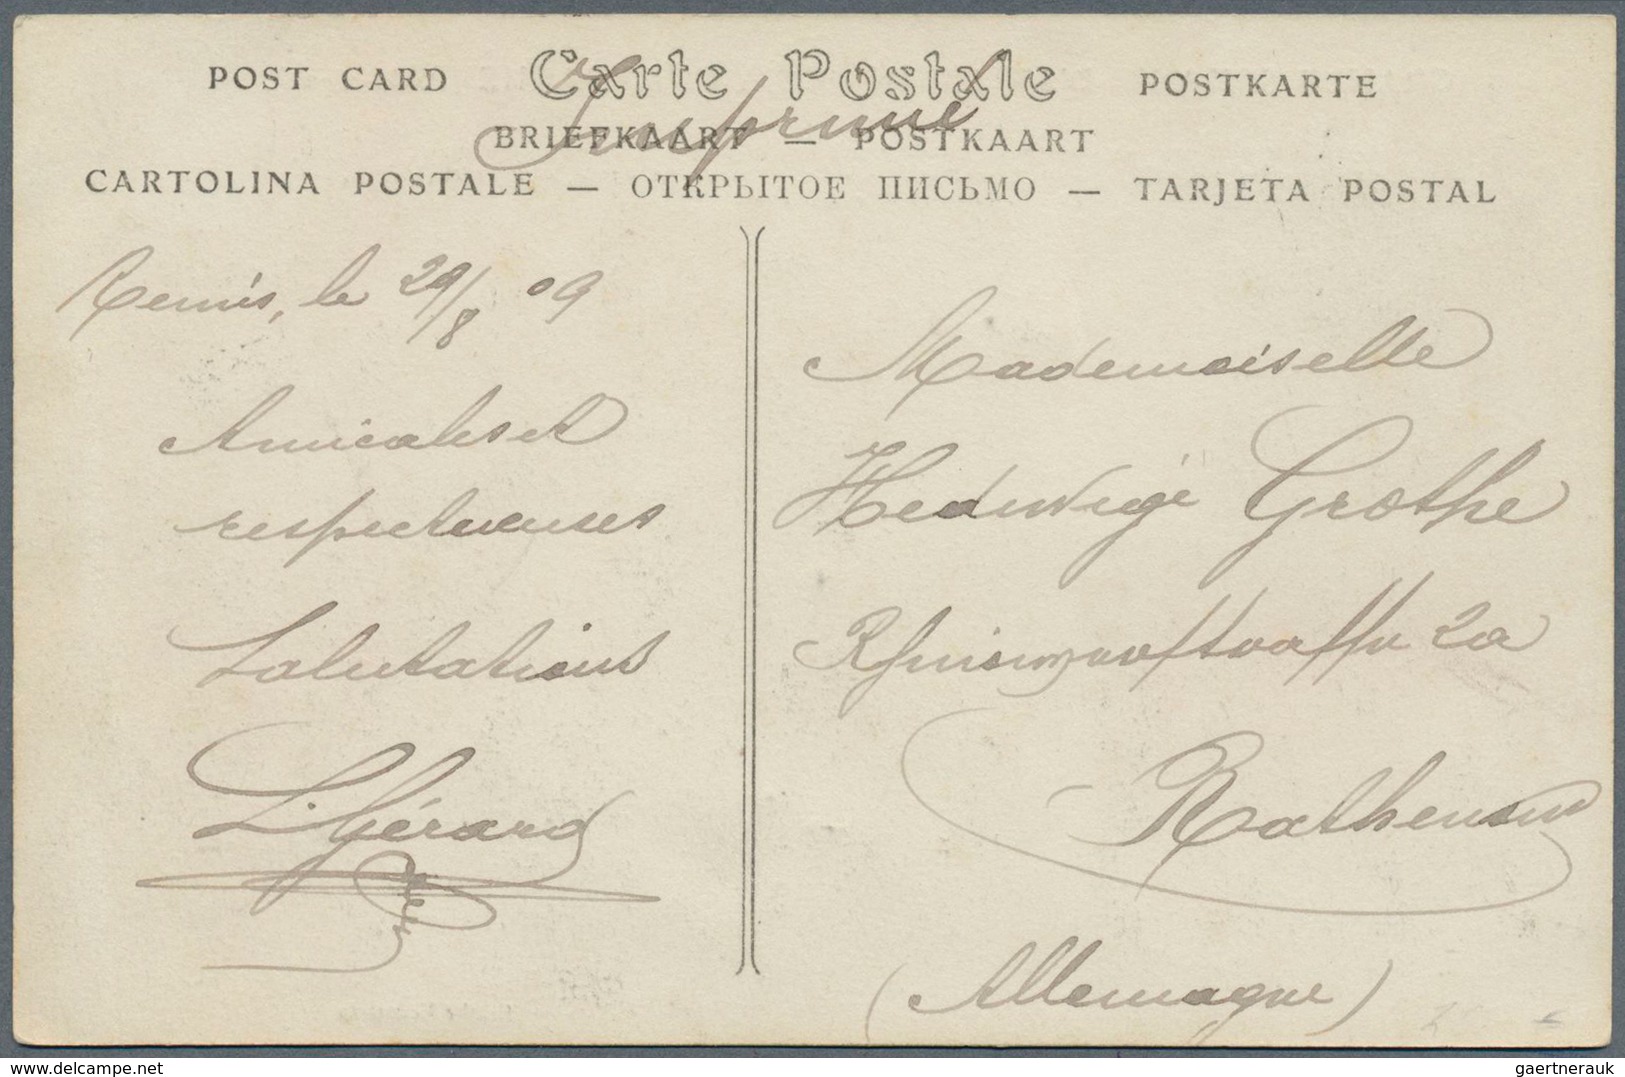 POST CARD Carte Postale POSTKARTE
Imprimé
BRIEFKAART — POSTKAART
CARTOLINA POSTALE — ОТКРЫТОЕ ПИСЬМО — TARJETA POSTAL
le 29/8 09
Amicales et
respectueuses
Salutations
L. Gérard
Mademoiselle
Hedwige Grothe
2a
Rathenow
(Allemagne)
delcampe.net
gaertnerauk